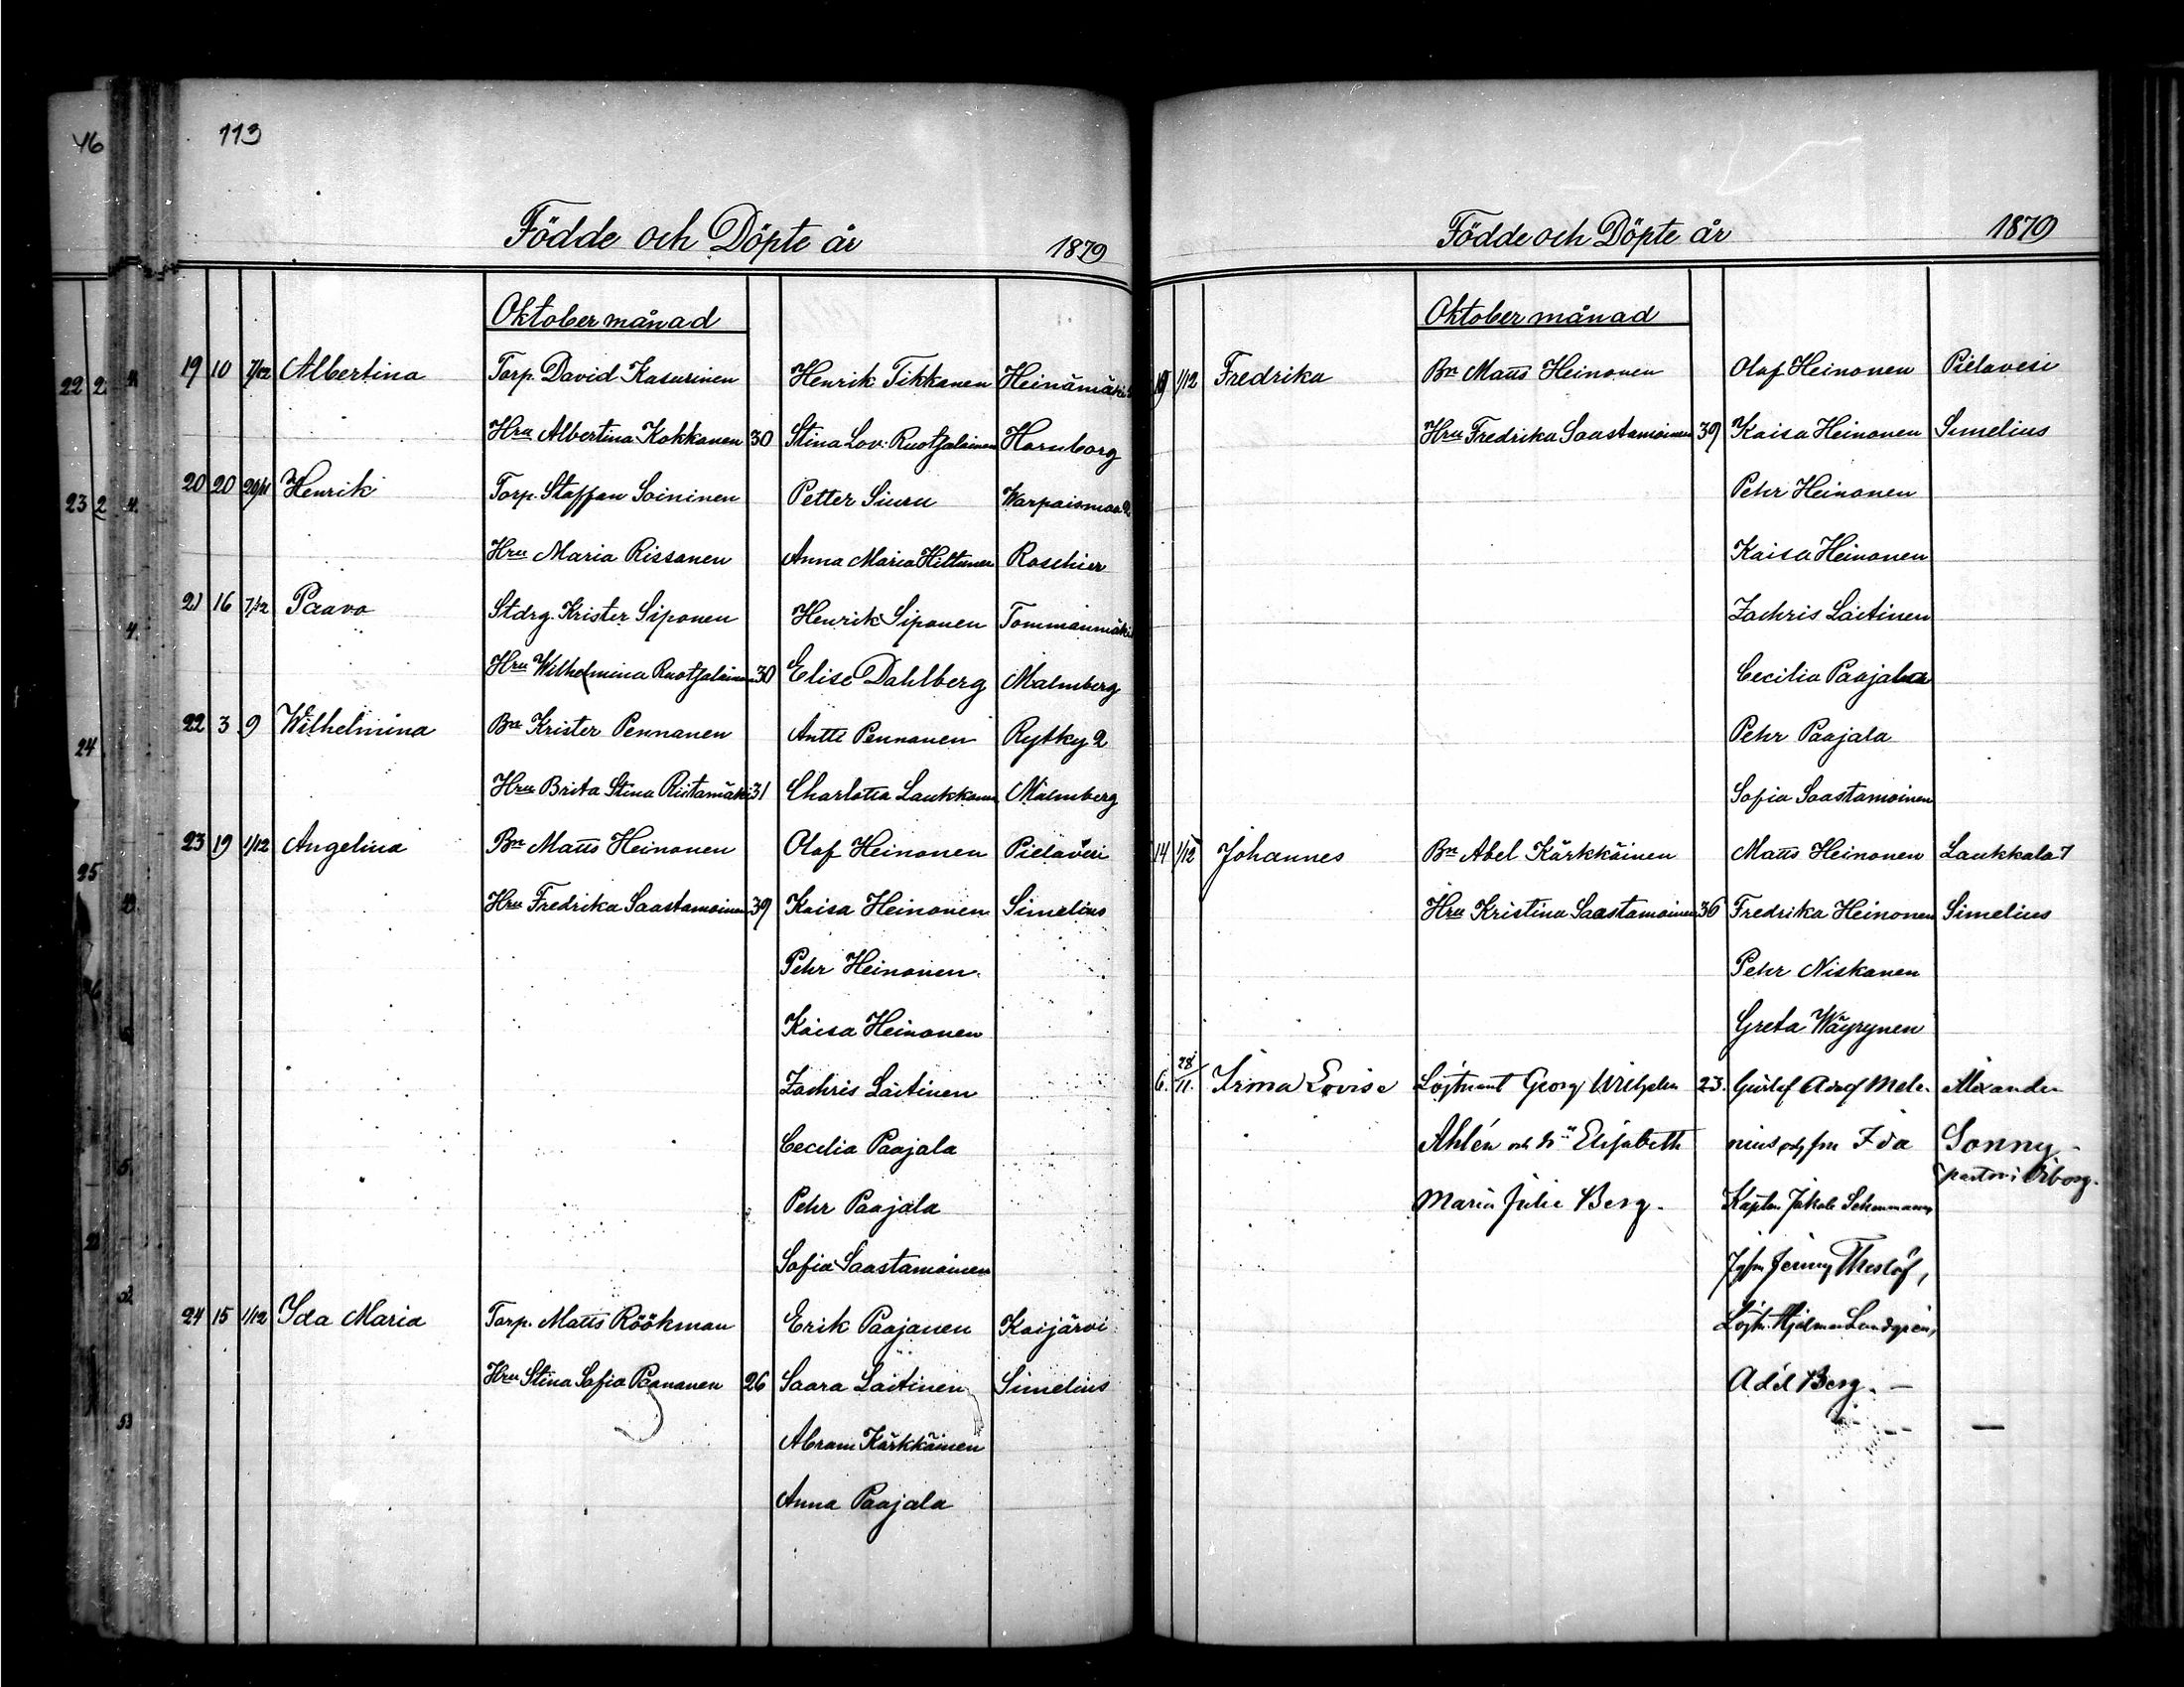 113
Födde och Döpte år 1879
Oktober månad
19 10 7/12 Albertina Torp. David Kasurinen Henrik Tikkanen Heinämäki
Hru Albertina Kokkanen 30 Stina Lov. Ruotsalainen Hornborg
20 20 29/11 Henrik Torp. Staffan Soininen Petter Siuru Warpaismaa 2
Hru Maria Rissanen Anna Maria Hiltunen Roschier
21 16 7/12 Paavo Stdrg. Krister Siponen Henrik Siponen Tommanmäki
Hru Wilhelmina Ruotsalainen 30 Elise Dahlberg Malmberg
22 3 9 Wilhelmina Bn Krister Pennanen Antti Pennanen Rytky 2
Hru Brita Stina Riitamäki 31 Charlotta Laukkanen Malmberg
23 19 1/12 Angelina Bn Matts Heinonen Olof Heinonen Pielavesi
Hru Fredrika Saastamoinen 39 Kaisa Heinonen Simelius
Pehr Heinonen
Kaisa Heinonen
Zachris Laitinen
Cecilia Paajala
Pehr Paajala
Sofia Saastamoinen
24 15 1/12 Ida Maria Torp. Matts Röökman Erik Paajanen Kaijärvi
Hru Stina Sofia Paananen 26 Saara Laitinen Simelius
Abram Kärkkäinen
Anna Paajala
Födde och Döpte år 1879
Oktober månad
19 1/12 Fredrika Bn Matts Heinonen Olof Heinonen Pielavesi
Hru Fredrika Saastamoinen 39 Kaisa Heinonen Simelius
Pehr Heinonen
Kaisa Heinonen
Zachris Laitinen
Cecilia Paajala
Pehr Paajala
Sofia Saastamoinen
14 1/12 Johannes Bn Abel Kärkkäinen Matts Heinonen Laukkala 7
Hru Kristina Saastamoinen 36 Fredrika Heinonen Simelius
Pehr Niskanen
Greta Wäyrynen
6. 28/11. Irma Lovise Löjtnant Georg Wilhelm 23. Gustaf Adolf Mele- Alexander
Ahlén och h:u Elisabeth nius och fru Ida Sonny
pastor i Wiborg.
Maria Julie Berg. Kapten Jakob Schemmann
Jenny Theslöf,
Löjtn. Hjalmar Lundgren,
Adél Berg. —